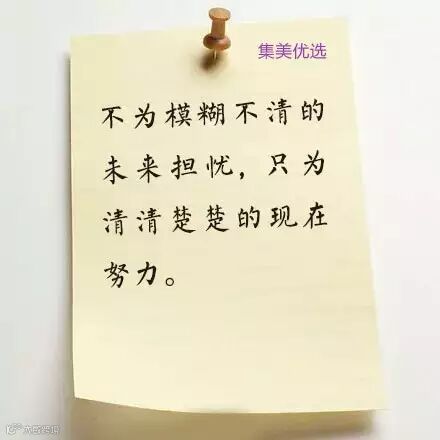 集美优选
不为模糊不清的
未来担忧，只为
清清楚楚的现在
努力。
大数跨境